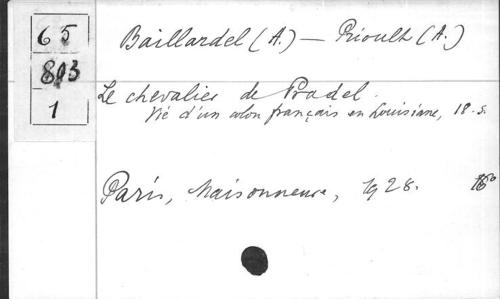 65
803
1
Baillardel (A.) — Prioult (A.)
Le chevalier de Pradel.
Vie d'un colon français en Louisiane, 18. s.
Paris, Maisonneuve, 1928.